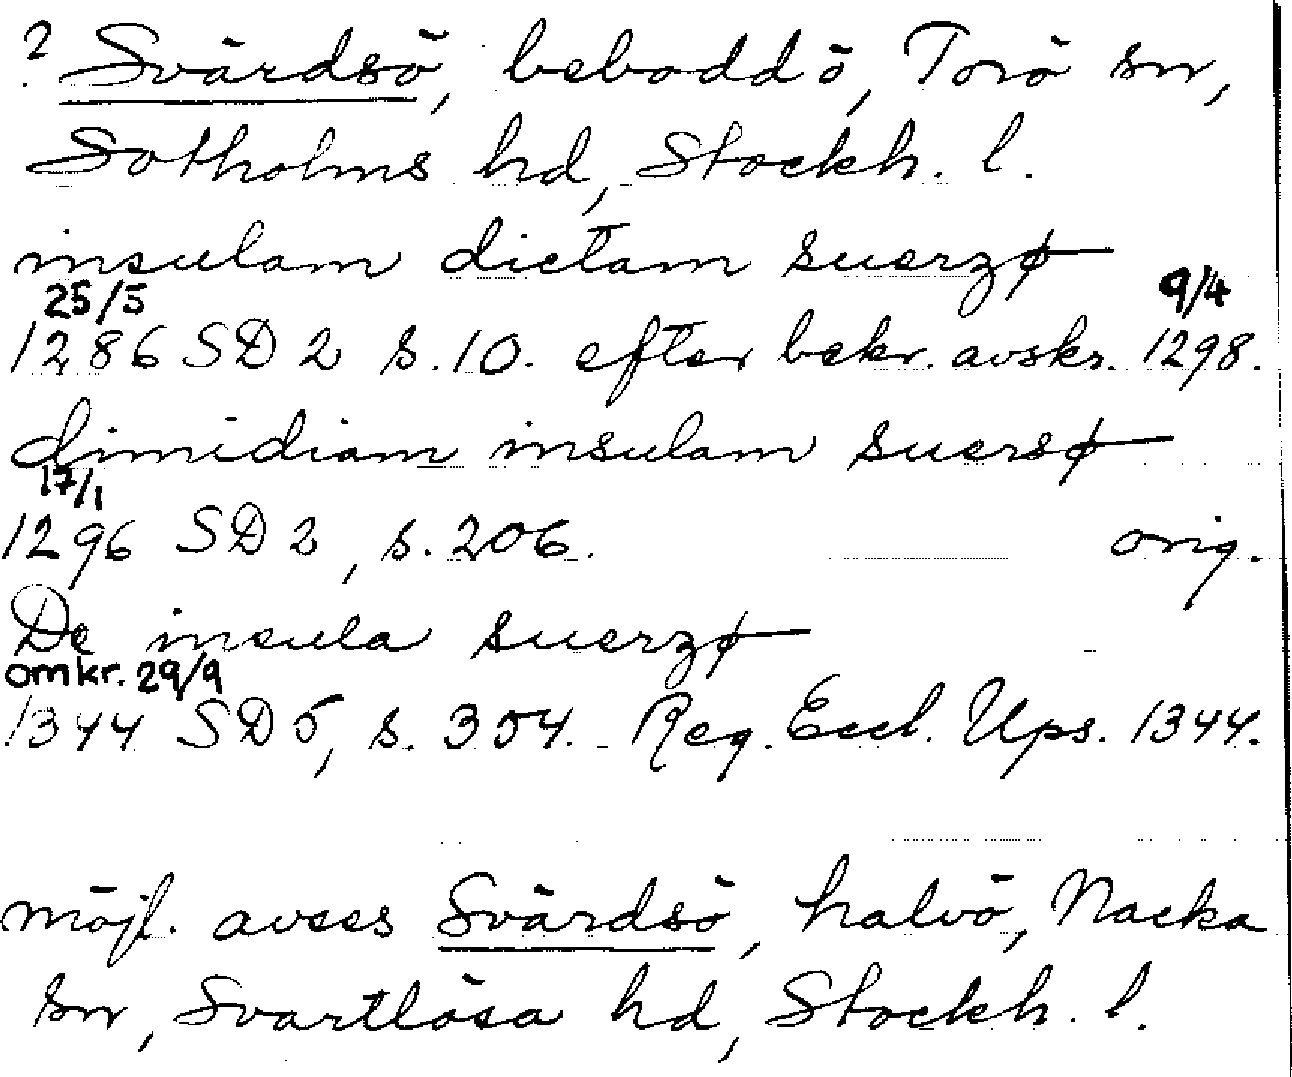 ? Svärdsö, bebodd ö, Torö sn,
Sotholms hd, Stockh. l.
insulam dictam suerzø
25/5 9/4
1286 SD 2 s. 10. efter bekr. avskr. 1298.
dimidiam insulam suersø
17/1
1296 SD 2, s. 206. orig.
De insula suerzø
omkr. 29/9
1344 SD 5, s. 354. Reg. Eccl. Ups. 1344.
möjl. avses Svärdsö, halvö, Nacka
sn, Svartlösa hd, Stockh. l.